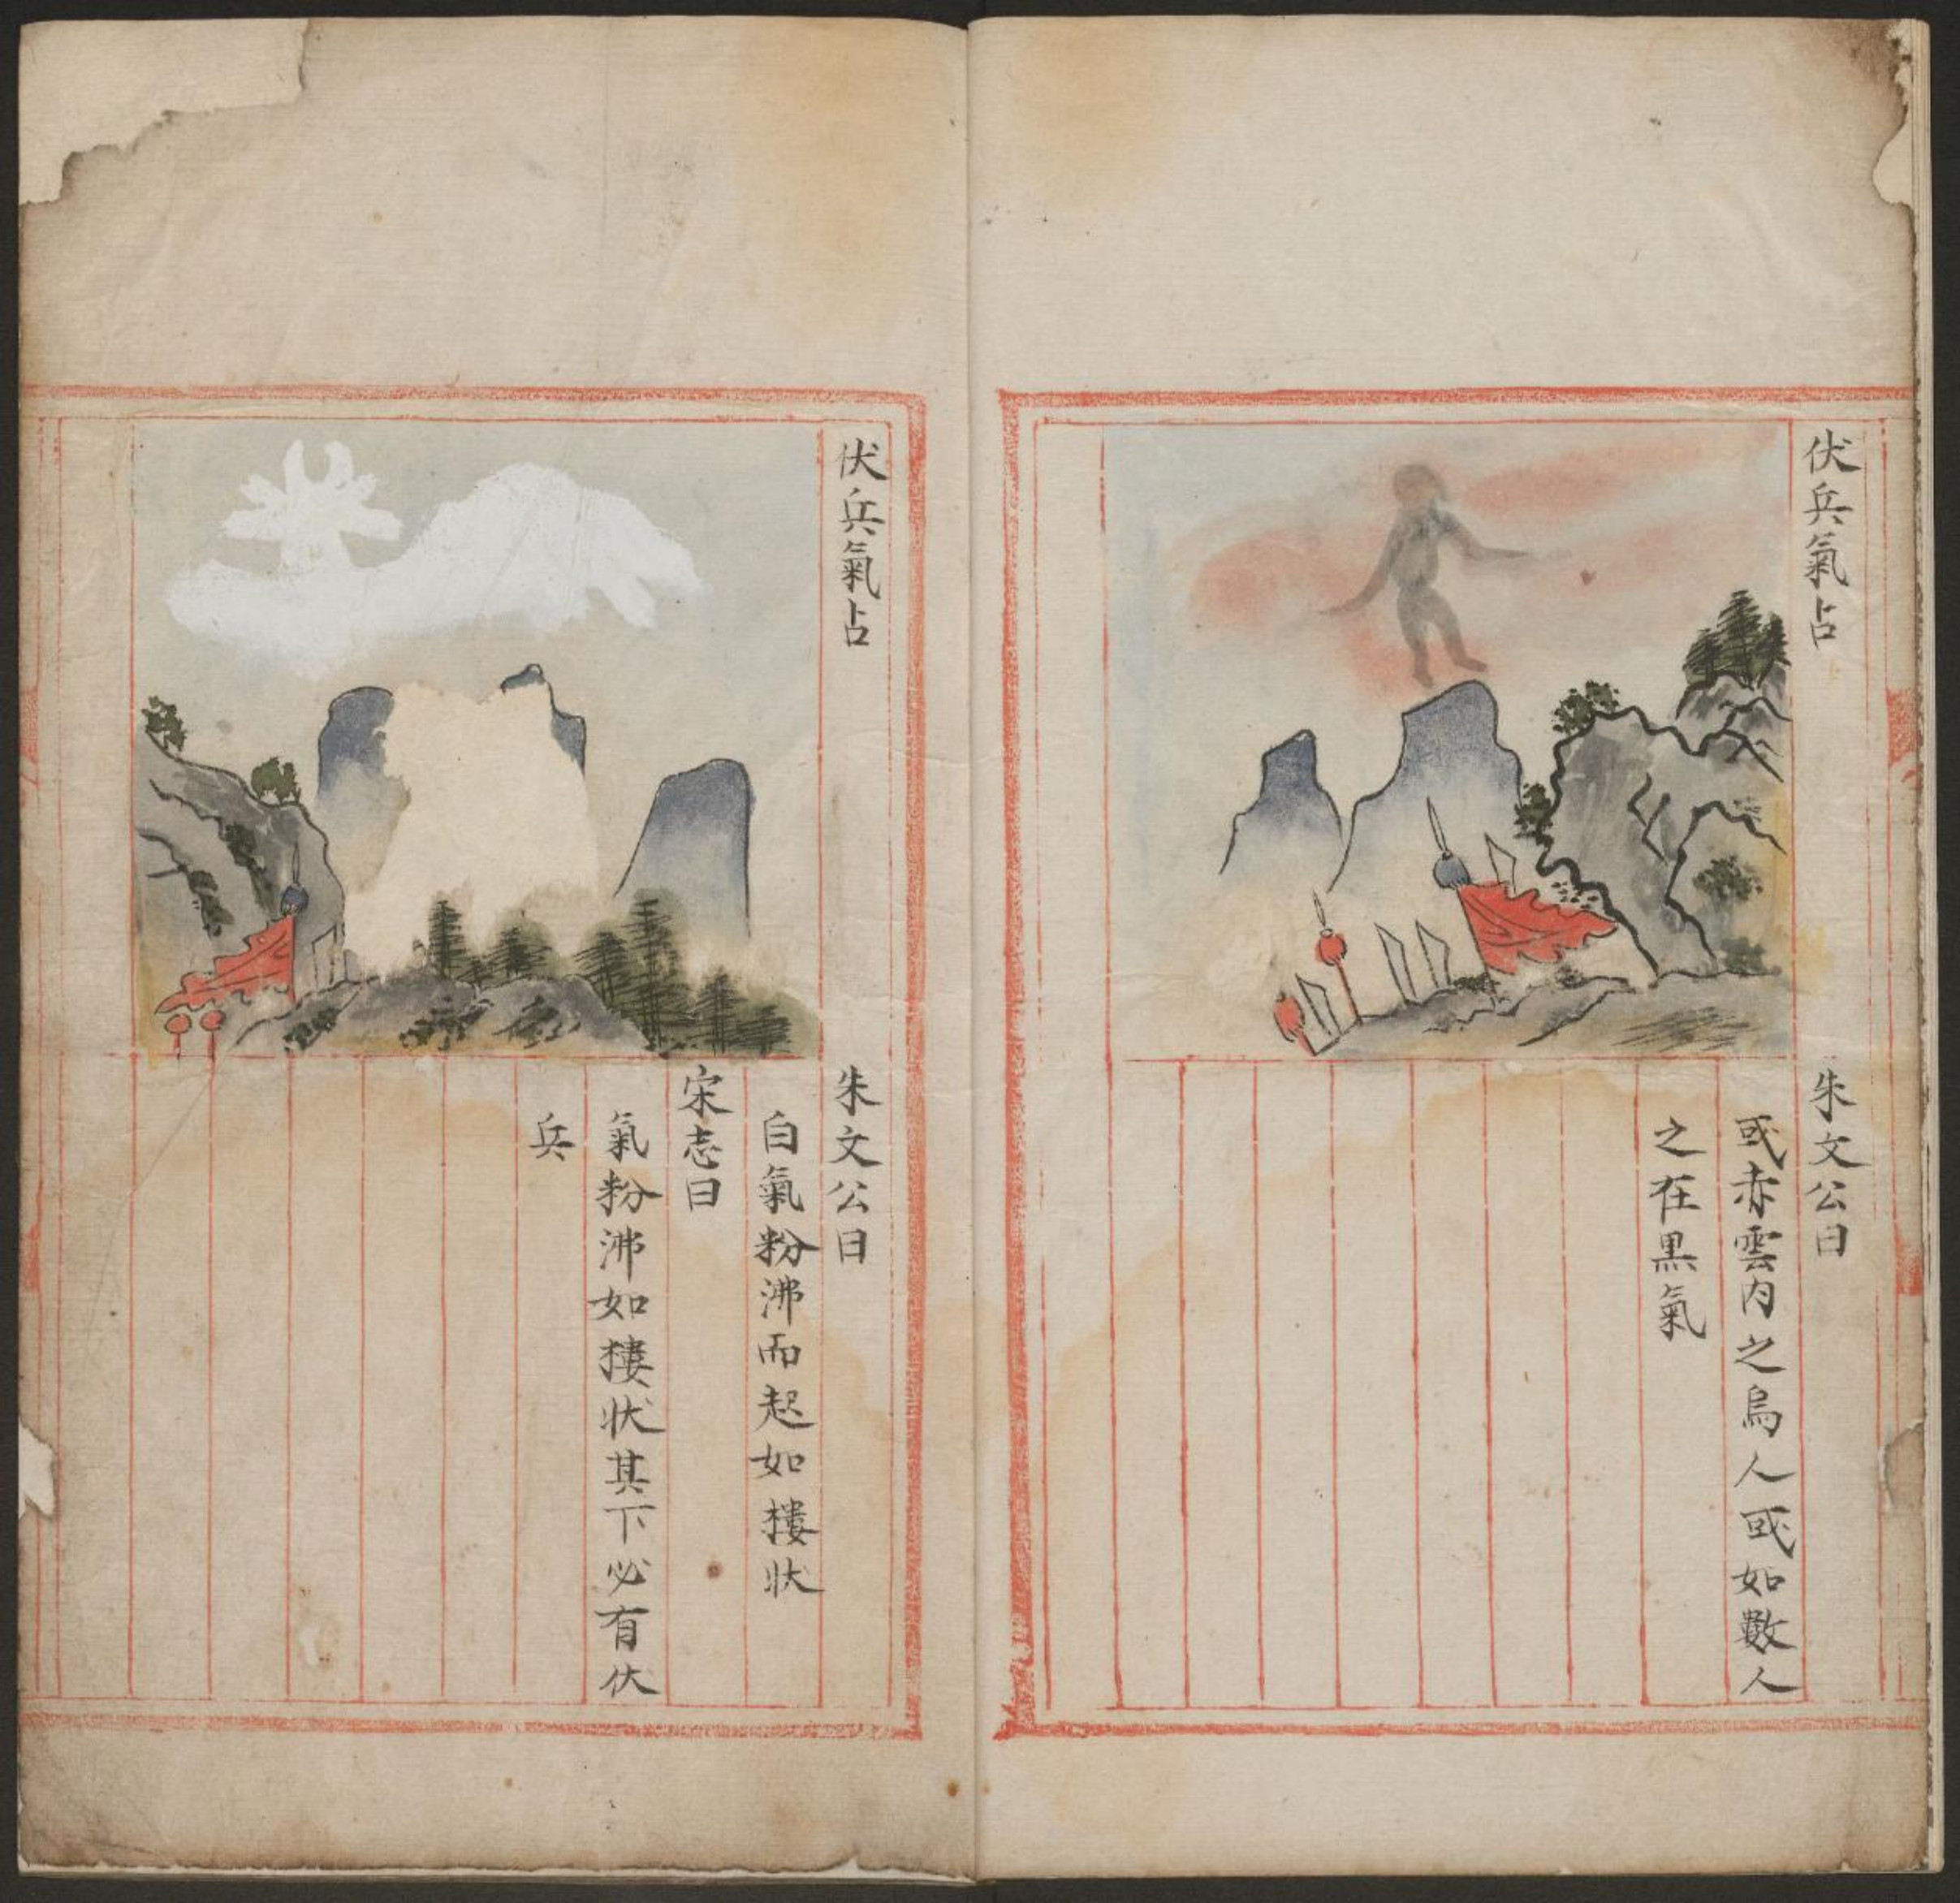 伏兵氣占
朱文公曰
或赤雲内之烏人或如數人
之在黒氣
伏兵氣占
朱文公曰
白氣粉沸而起如樓状
宋志曰
氣粉沸如樓状其下必有伏
兵